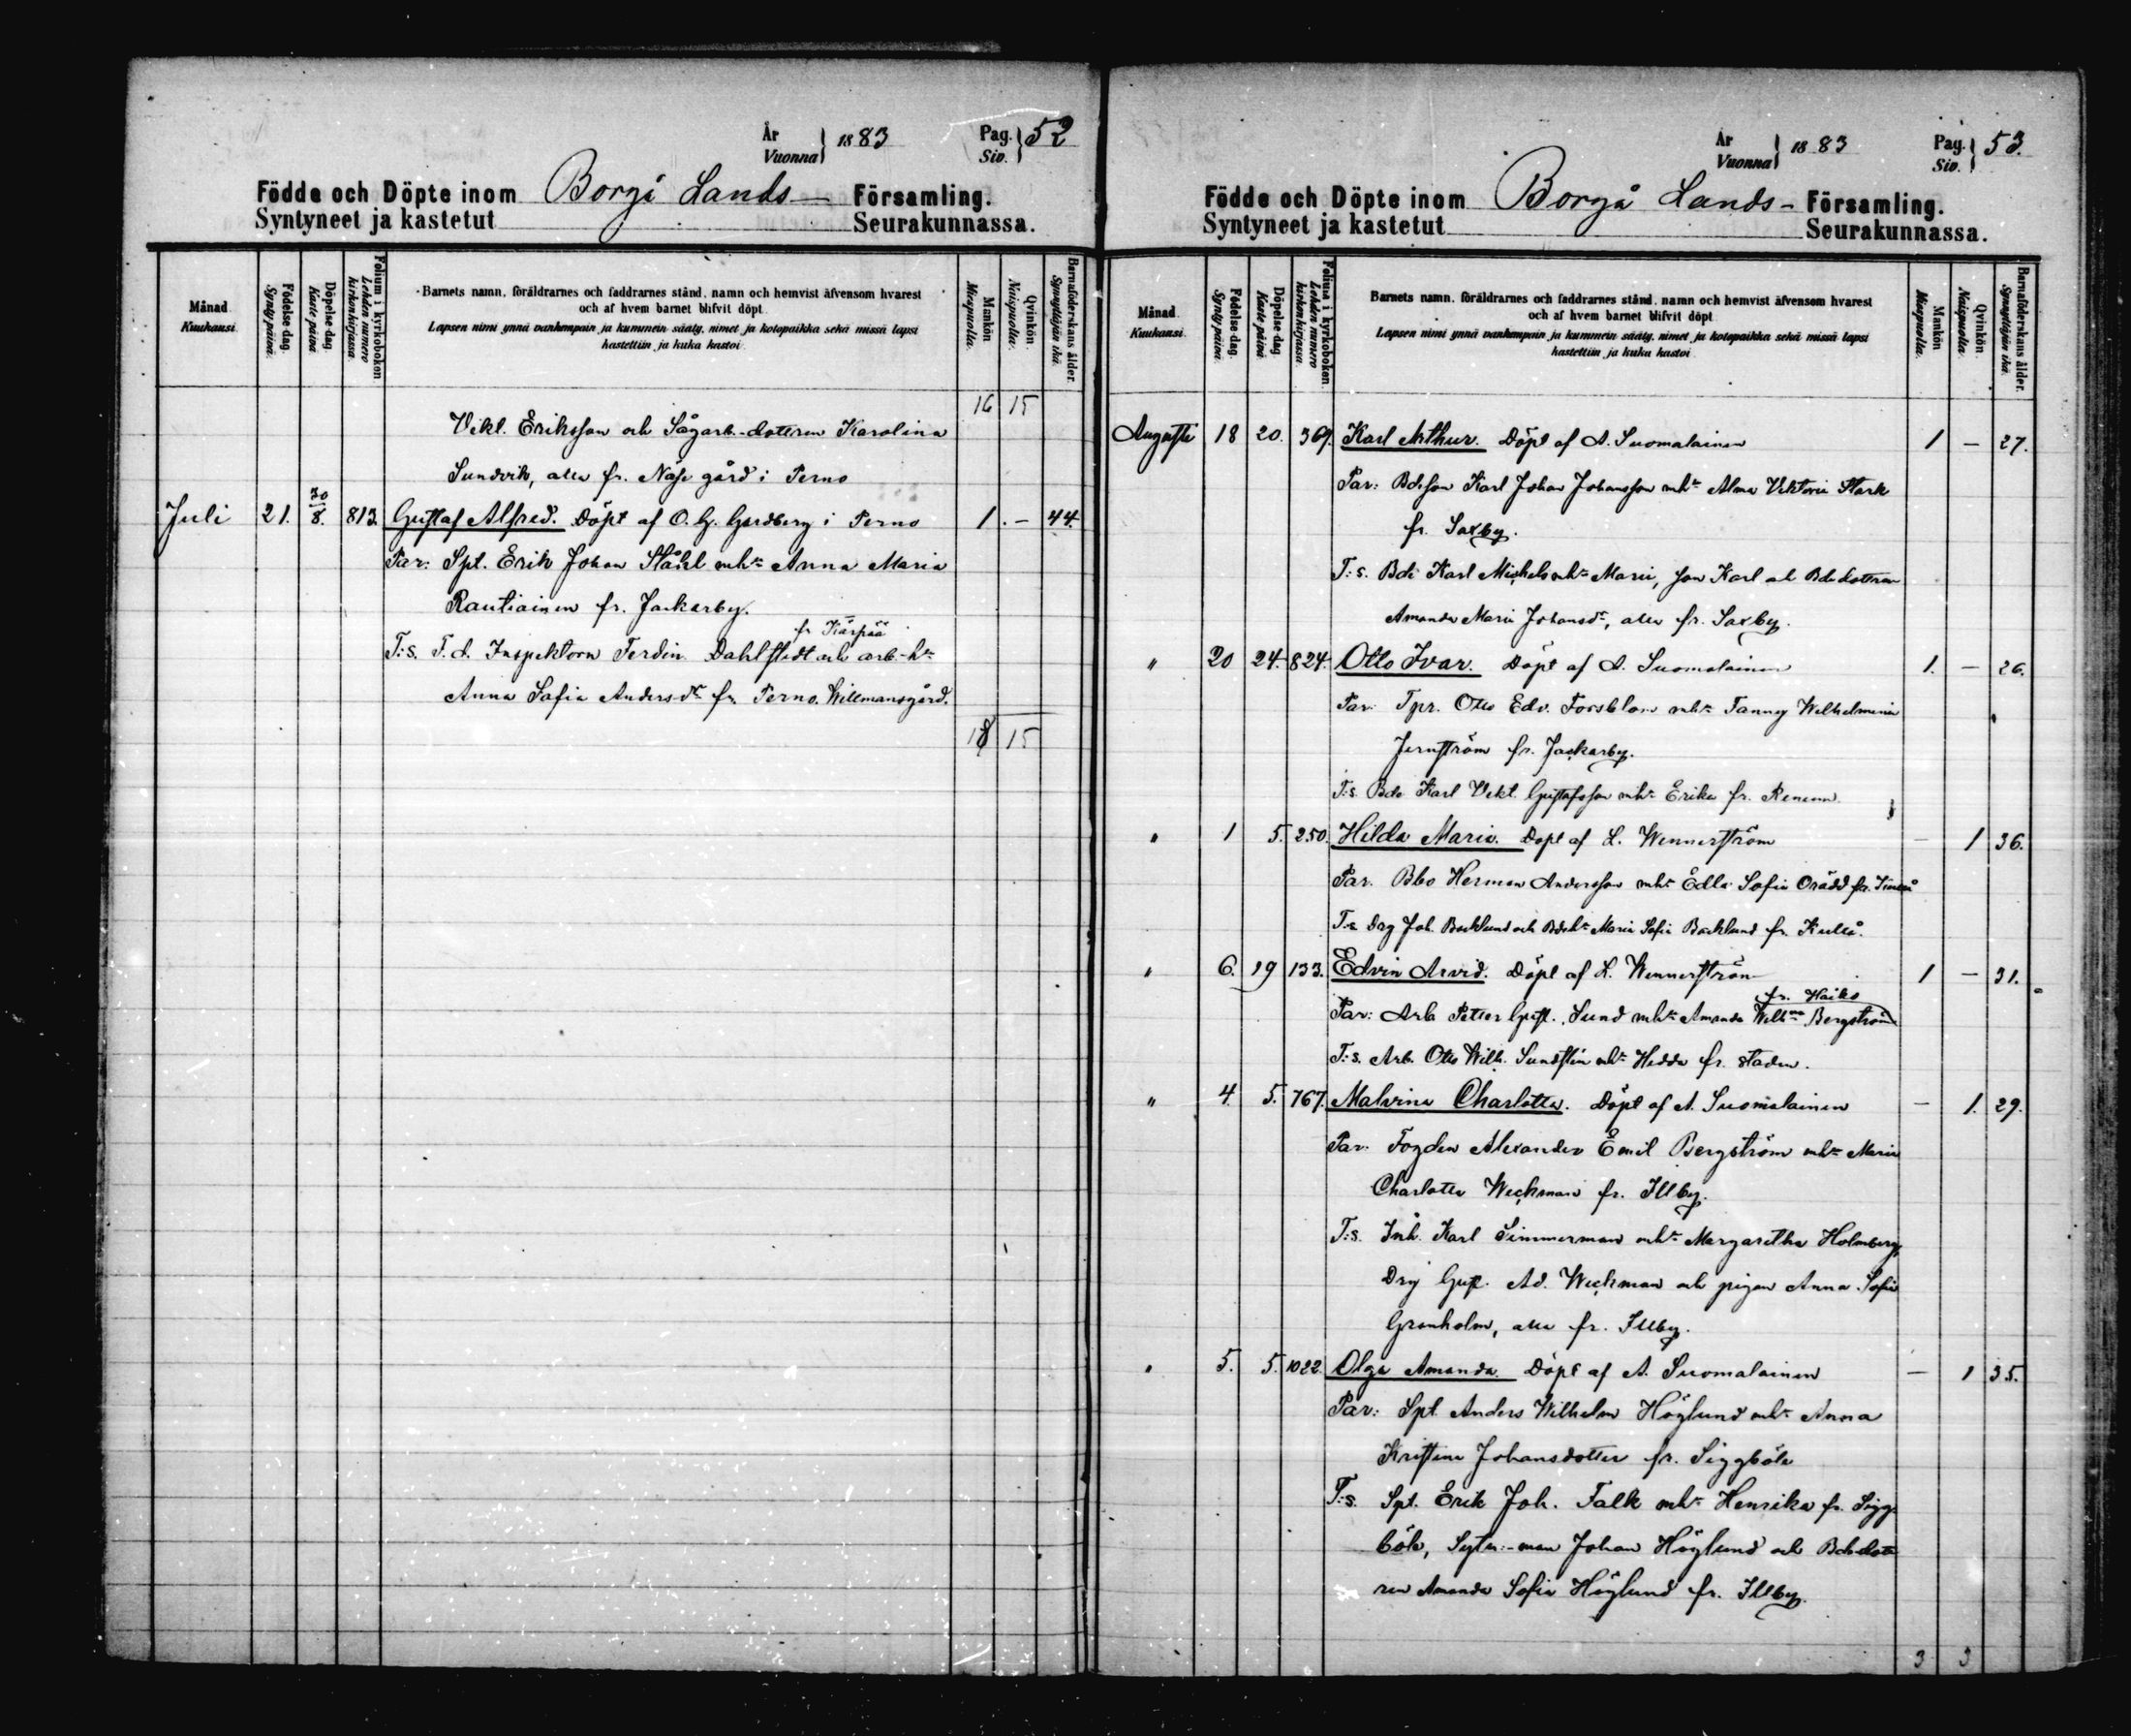 År
Vuonna } 1883
Pag.
Siv. } 52
Födde och Döpte inom Borgå Lands- Församling.
Syntyneet ja kastetut Seurakunnassa.
Månad
Kuukausi.
Födelse dag.
Synty päivä.
Döpelse dag.
Kaste päivä
Folium i kyrkoboken
Lehden numero
kirkonkirjassa.
Barnets namn, föräldrarnes och faddrarnes stånd, namn och hemvist äfvensom hvarest
och af hvem barnet blifvit döpt.
Lapsen nimi ynnä vanhempain ja kummein sääty, nimet ja kotopaikka sekä missä lapsi
kastettiin ja kuka kastoi.
Mankön
Miespuolia.
Qvinkön.
Naispuolia.
Barnaföderskans ålder.
Synnyttäjän ikä.
16 15
Vikt. Eriksson och Sågarb.-dottern Karolina
Sundvik, alla fr. Näse gård i Perno
Juli 21. 20/8. 813. Gustaf Alfred. Döpt af O. G. Gardberg i Perno 1. - 44.
Par: Spt. Erik Johan Ståhl mh. Anna Maria
Rautiainen fr. Jackarby.
fr Kärpää
T:s. F. d. Inspektorn Ferdin. Dahlstedt och arb-h.
Anna Sofia Andersd. fr. Perno. Willmansgård.
18 15
År
Vuonna } 1883
Pag.
Siv. } 53.
Födde och Döpte inom Borgå Lands- Församling.
Syntyneet ja kastetut Seurakunnassa.
Månad
Kuukausi.
Födelse dag.
Synty päivä.
Döpelse dag
Kaste päivä.
Folium i kyrkoboken.
Lehden numero
kirkonkirjassa.
Barnets namn, föräldrarnes och faddrarnes stånd, namn och hemvist äfvensom hvarest
och af hvem barnet blifvit döpt
Lapsen nimi ynnä vanhempain ja kummein sääty, nimet ja kotopaikka sekä missä lapsi
kastettiin ja kuka kastoi
Mankön
Miespuolia.
Qvinkön.
Naispuolia.
Barnaföderskans ålder.
Synnyttäjän ikä.
Augusti 18 20. 369. Karl Arthur. Döpt af A. Suomalainen 1 - 27.
Par: Bdeson Karl Johan Johansson mh. Alma Viktoria Stark
fr. Saxby.
T:s. Bde Karl Michels mh. Maria, son Karl och Bdedottern
Amanda Maria Johansd., alla fr. Saxby.
" 20 24. 824. Otto Ivar. Döpt af A. Suomalainen 1. - 26.
Par: Tpr. Otto Edv. Forsblom mh. Fanny Wilhelmina
Jernström fr. Jackarby.
T:s. Bde Karl Vikt. Gustafsson mh. Erika fr. Renum.
" 1 5. 250. Hilda Maria. Döpt af L. Wennerström - 1 36.
Par. Bbo Herman Andersson mh. Edla Sofia Orädd fr.
T:s. Drg Joh. Backlund och Bdeh. Maria Sofia Backlund fr. Kullo.
" 6. 19 133. Edvin Arvid. Döpt af L. Wennerström 1 - 31.
fr. Haiko
Par: Arb Petter Gust. Lund mh. Amanda Wilhna Bergström
T:s. Arb. Otto Wilh. Sundsten mh. Hedda fr. staden.
" 4. 5. 767. Malvina Charlotta. Döpt af A. Suomalainen - 1. 29.
Par: Fogden Alexander Emil Bergström mh. Maria
Charlotta Weckman fr. Illby.
T:s. Inh. Karl Simmerman mh. Margaretha Holmberg,
Drg Gust. Ad. Weckman och pigan Anna Sofia
Granholm, alla fr. Illby.
" 5. 5. 1022. Olga Amanda. Döpt af A. Suomalainen - 1 35.
Par: Spt. Anders Wilhelm Höglund mh. Anna
Kristina Johansdotter fr. Siggböle
T:s. Spt. Erik Joh. Falk mh. Henrika fr. Sigg-
böle, Sytn:-man Johan Höglund och Bdedotte
ren Amanda Sofia Höglund fr. Illby.
3 3